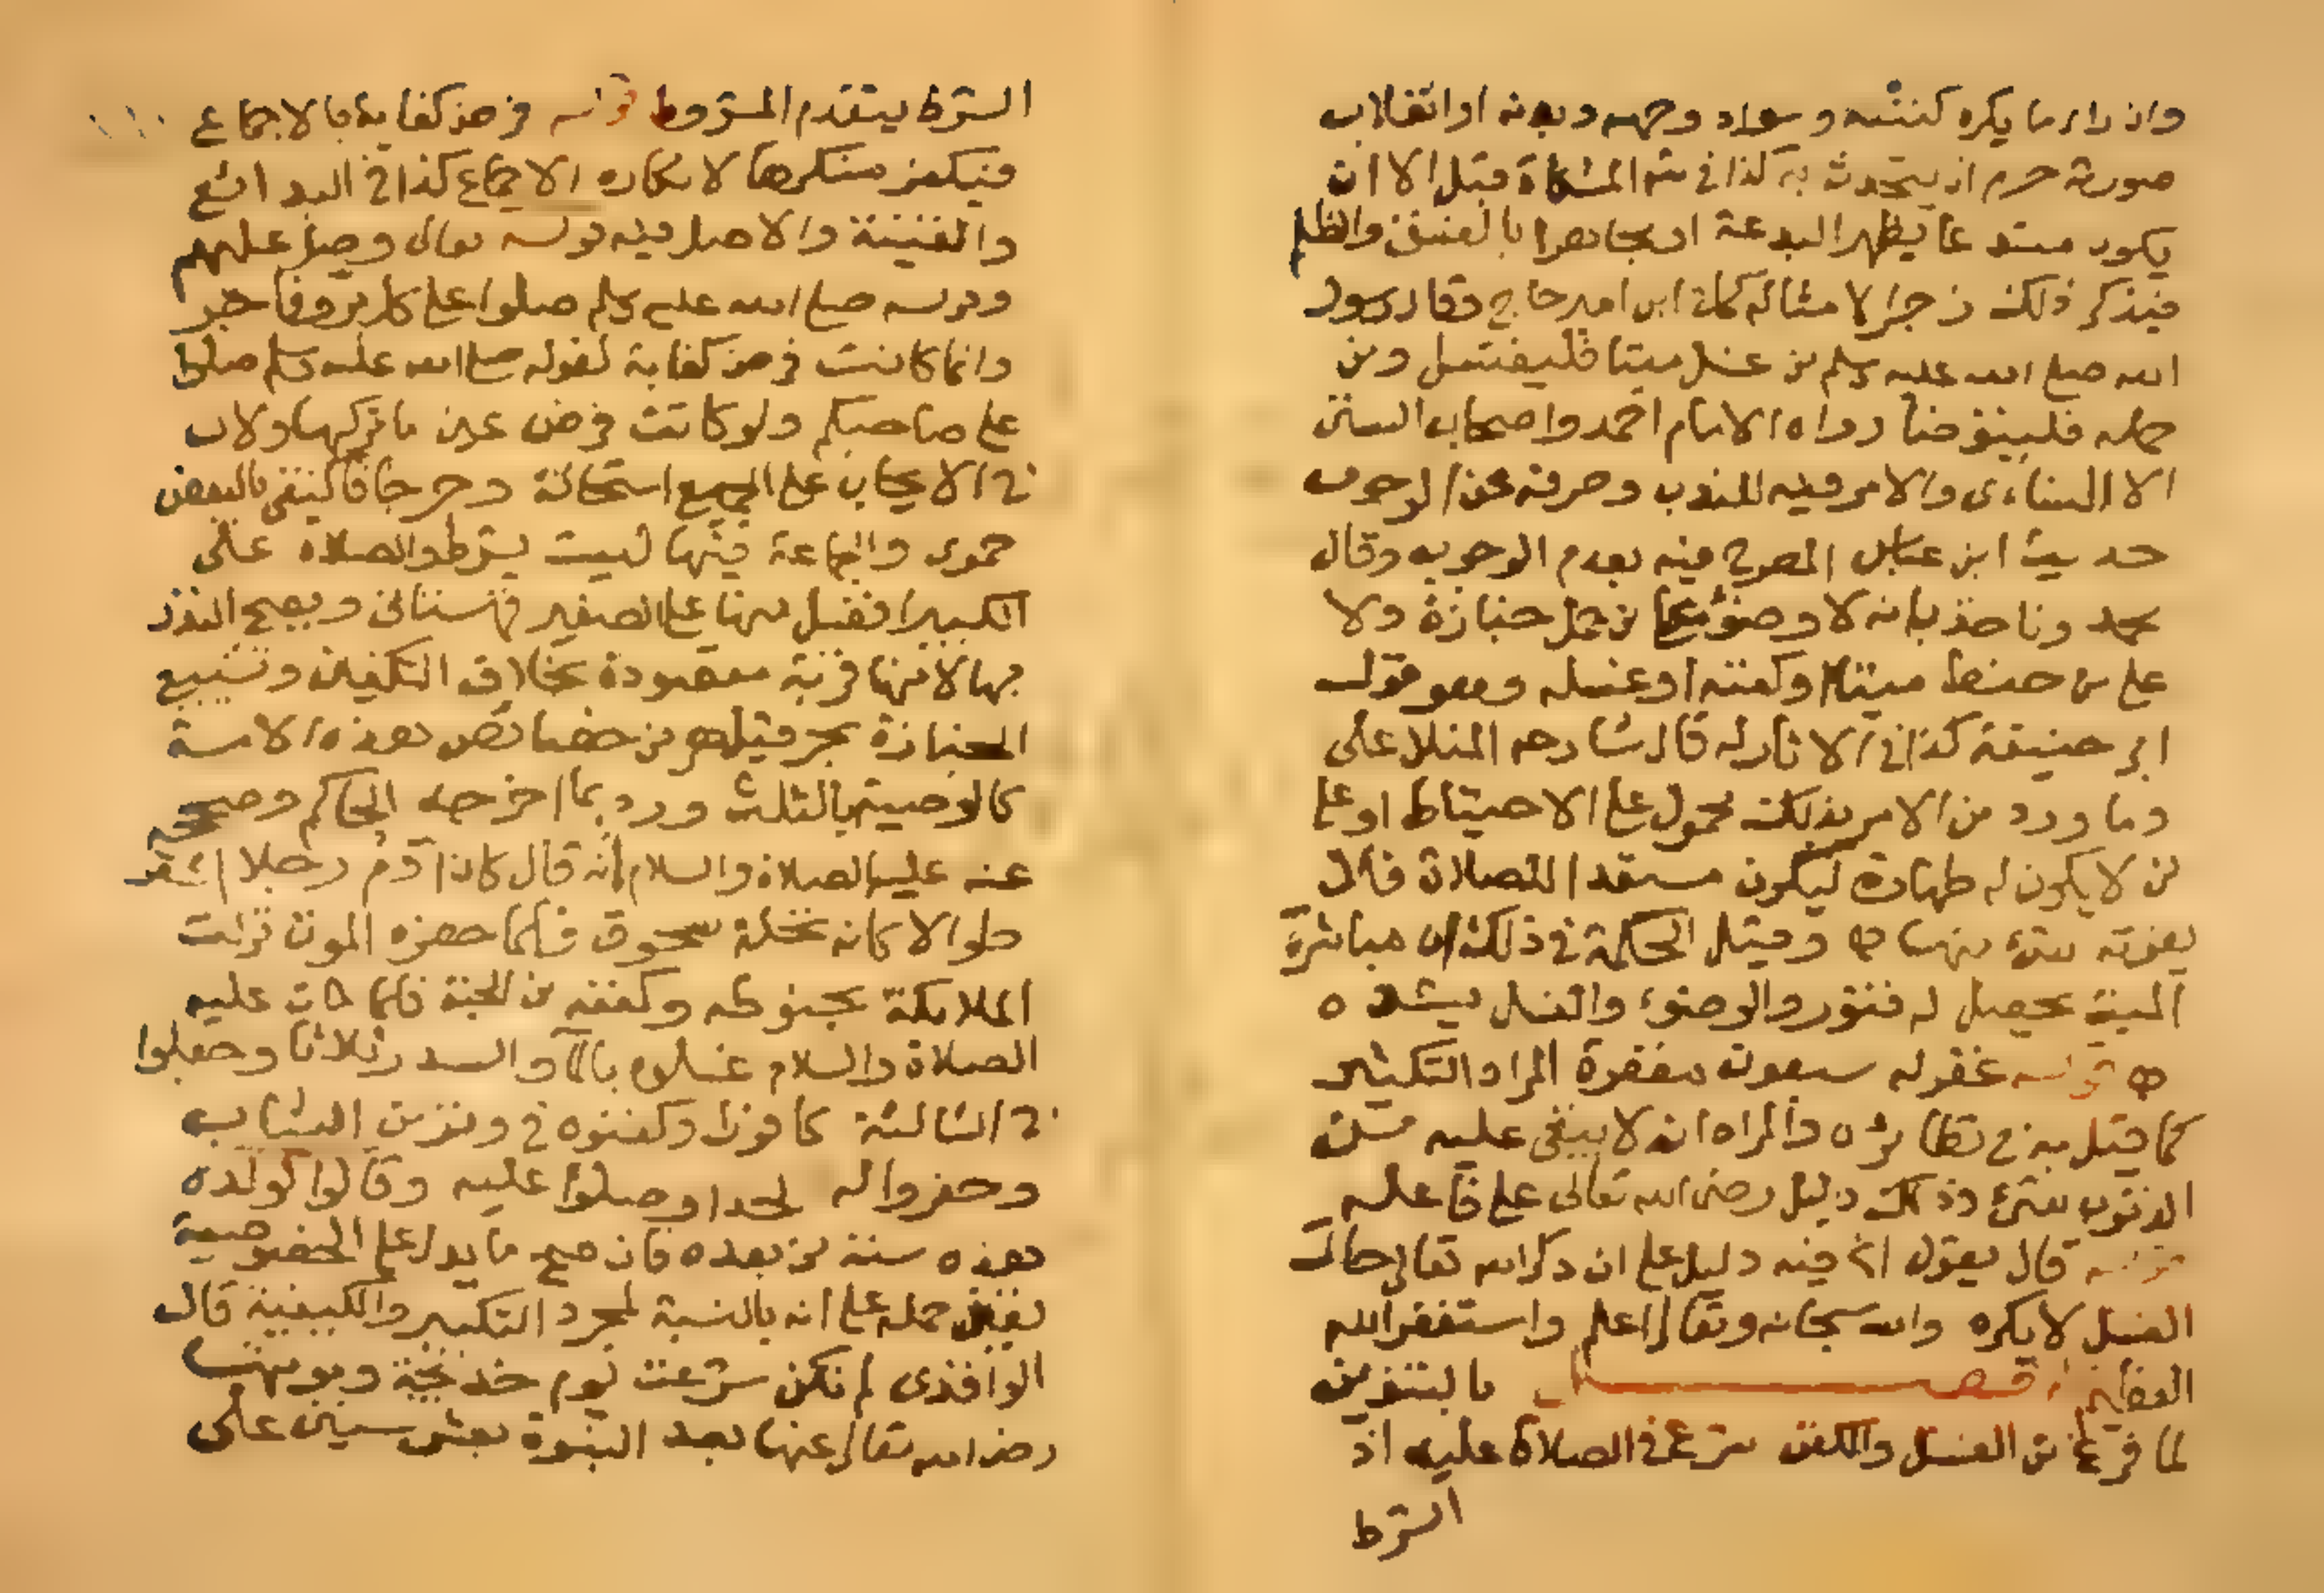 وان راى ما يكره كنتنه وسواد وجهه وبدنه او انقلاب
صورته حرم ان يتحدث به كذا في شرح المشكاة قيل الا ان
يكون مبتدعا يظهر البدعة او مجاهرا بالفسق والظلم
فيذكر ذلك زجرا لامثاله كما في ابن امير حاج وقال رسول
الله صلى الله عليه وسلم من غسل ميتا فليغتسل ومن
حمله فليتوضأ رواه الامام احمد واصحاب السنن
الا النساءى والامر فيه للندب وصرفه عن الوجوب
حديث ابن عباس المصرح فيه بعدم الوجوب وقال
محمد وناخذ بانه لا وضوء على من حمل جنازة ولا
على من حنط ميتا او كفنه او غسله وهو قول
ابى حنيفة كذا في الاثار له قال شارحه المنلا على
وما ورد من الامر بذلك محمول على الاحتياط او على
من لا يكون له طهارة ليكون مستعدا للصلاة فلا
يفوته شئ منها اه وقيل الحكمة في ذلك ان مباشرة
الميت يحصل له فتور والوضوء والغسل ينشطه
اه قوله غفر له سبعون مغفرة المراد التكثير
كما قيل به في نظائره والمراد انه لا يبقى عليه من
الذنوب شئ وذلك دليل رضى الله تعالى على فاعله
قوله قال يقول الخ فيه دليل على ان ذكر الله تعالى حال
الغسل لا يكره والله سبحانه وتعالى اعلم واستغفر الله
العظيم فصل بالتنوين
لما فرغ من الغسل والكفن شرع في الصلاة عليه اذ
الشرط
الشرط يتقدم المشروط قوله فرض كفاية بالاجماع
فيكفر منكرها لانكاره الاجماع كذا في البدائع
والقنية والاصل فيه قوله تعالى وصل عليهم
وقوله صلى الله عليه وسلم صلوا على كل بر وفاجر
وانما كانت فرض كفاية لقوله صلى الله عليه وسلم صلوا
على صاحبكم ولو كانت فرض عين ما تركها ولان
في الايجاب على الجميع استحالة وحرجا فاكتفى بالبعض
حموى والجماعة فيها ليست بشرط والصلاة على
الكبير افضل منها على الصغير قهستانى ويصح النذر
بها لانها قربة مقصودة بخلاف التكفين وتشييع
الجنازة بحر قيل هى من خصائص هذه الامة
كالوصية بالثلث ورد بما اخرجه الحاكم وصححه
عنه عليه الصلاة والسلام انه قال كان ادم رجلا اشعر
طوالا كانه نخلة سحوق فلما حضره الموت نزلت
الملائكة بحنوطه وكفنه من الجنة فلما مات عليه
الصلاة والسلام غسلوه بالماء والسدر ثلاثا وجعلوا
في الثالثة كافورا وكفنوه في وتر من الثياب
وحفروا له لحدا وصلوا عليه وقالوا لولده
هذه سنة من بعده فان صح ما يدل على الخصوصية
تعين حمله على انه بالنسبة لمجرد التكبير والكيفية قال
الواقدى لم تكن شرعت يوم خديجة وموتها
رضى الله تعالى عنها بعد النبوة بعشر سنين على